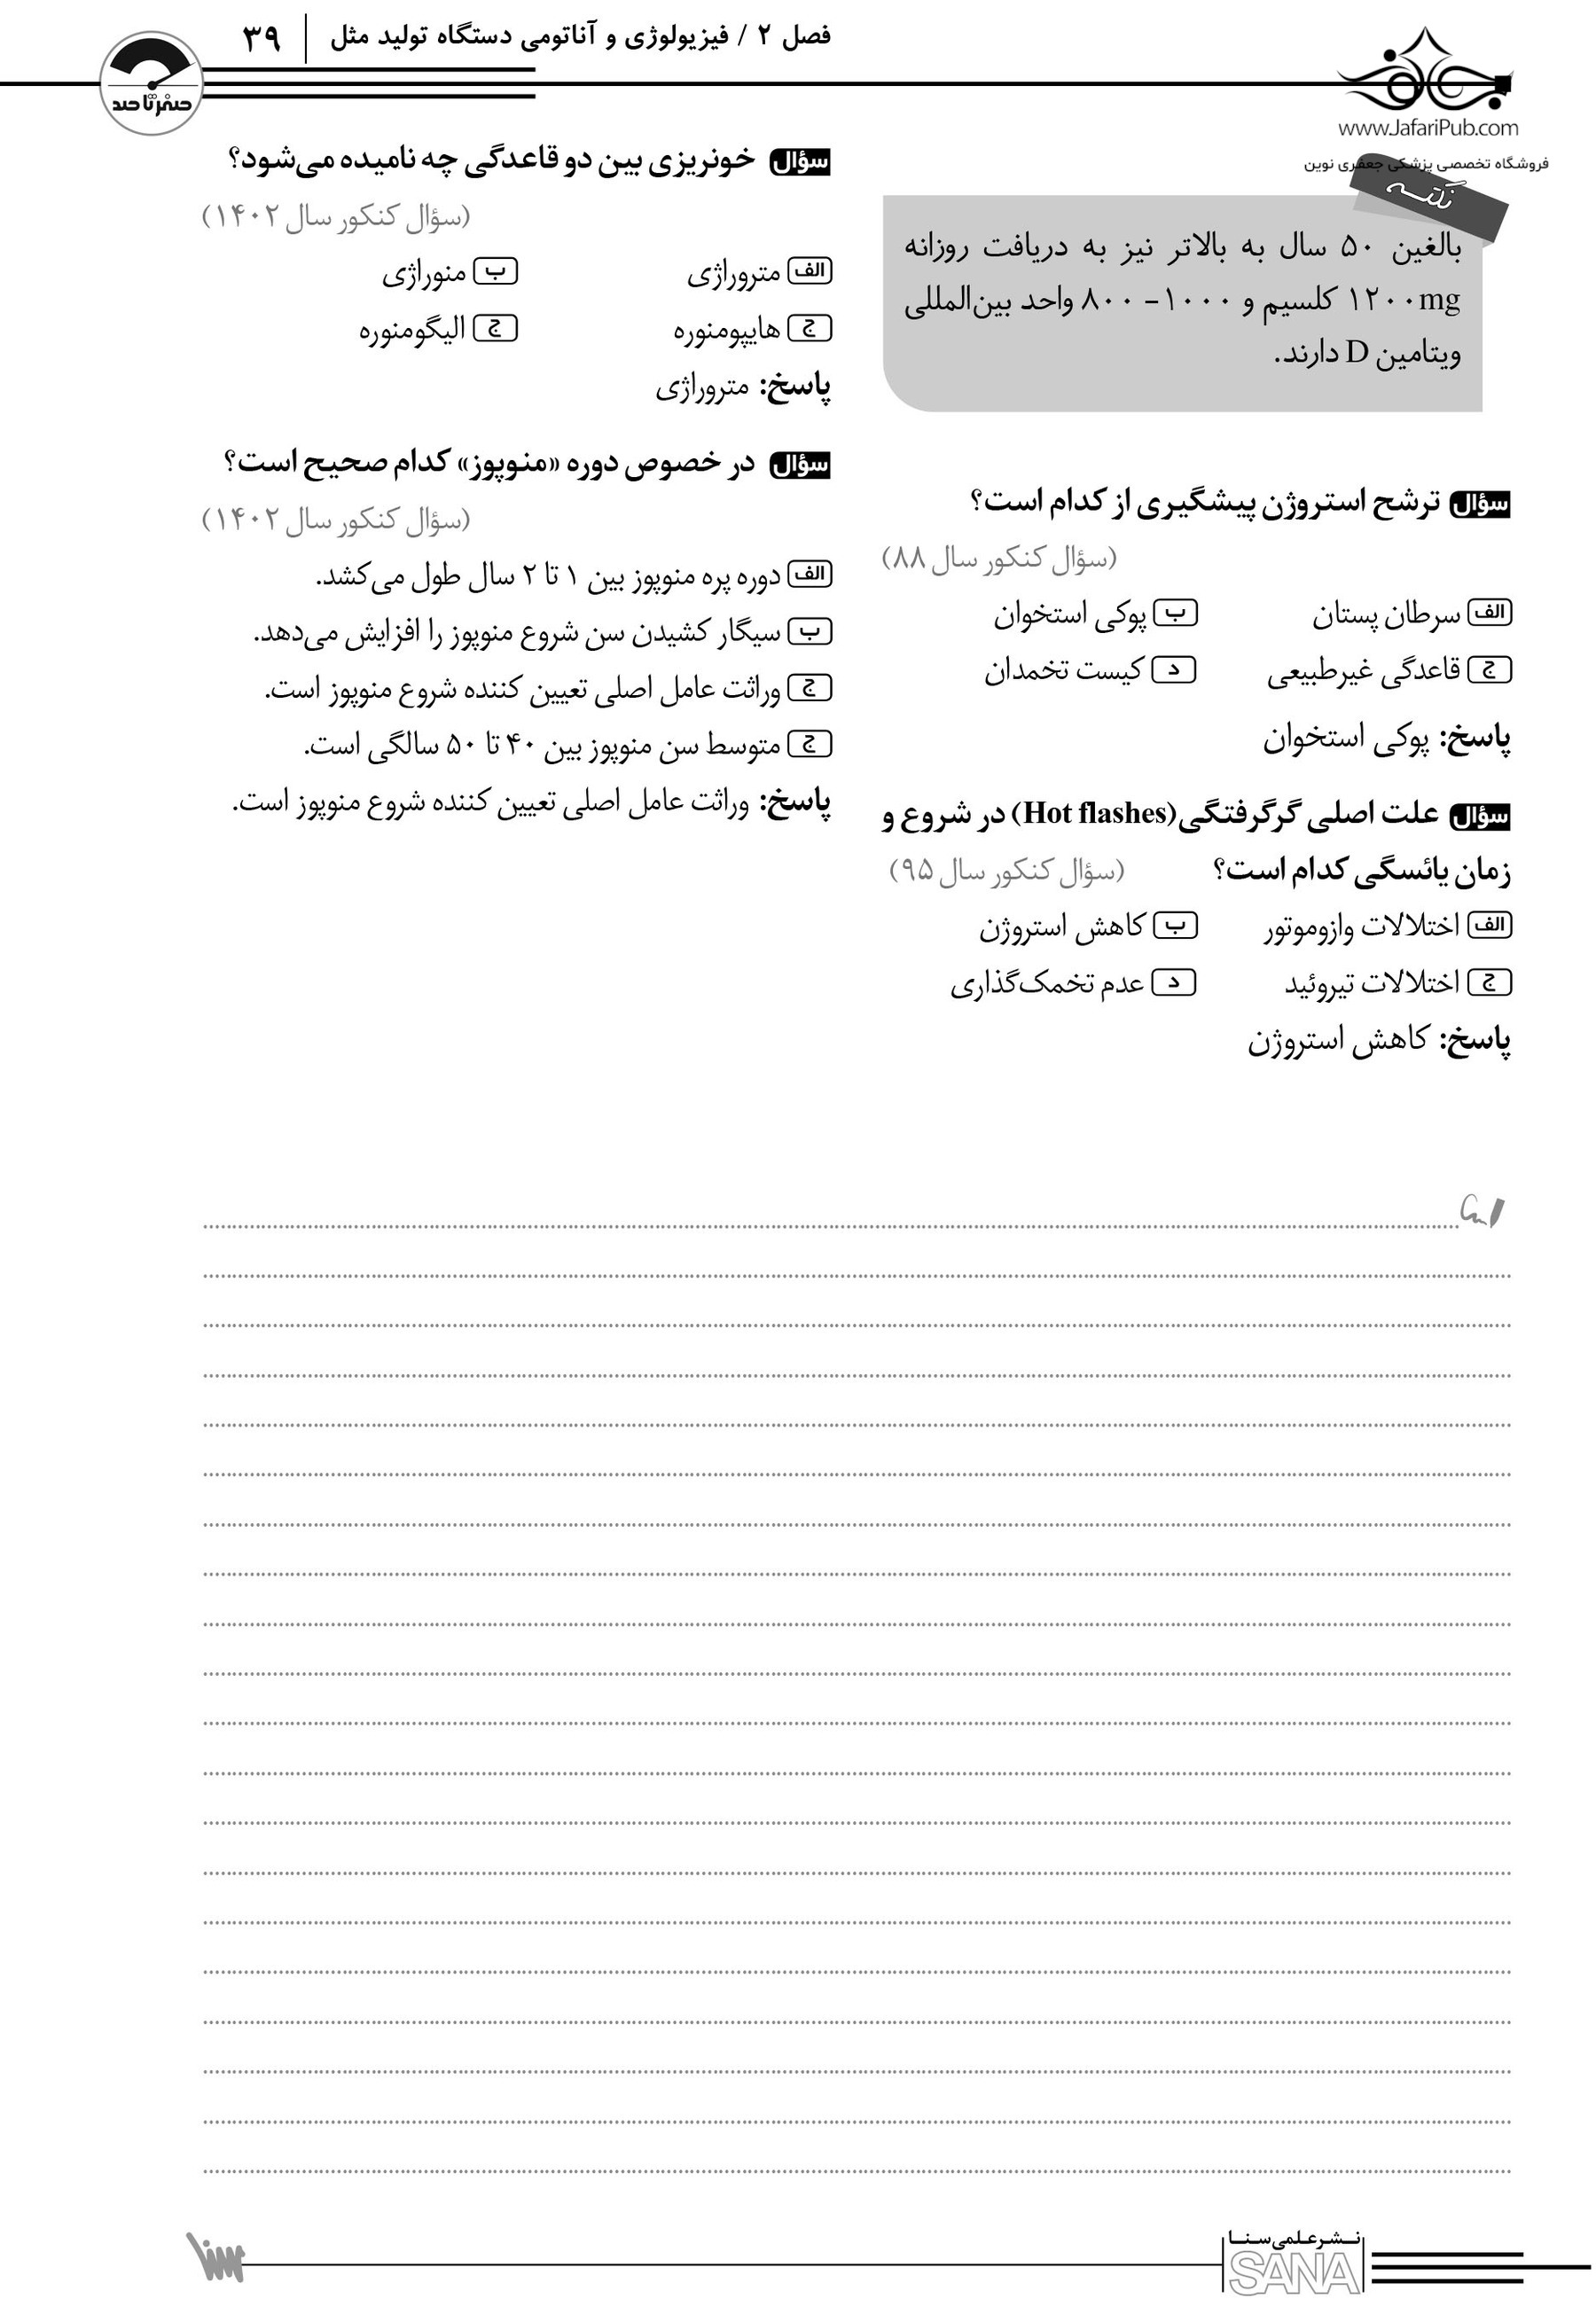 فصل ۲ / فیزیولوژی و آناتومی دستگاه تولید مثل
۳۹
صفر تا صد
www.JafariPub.com
فروشگاه تخصصی پزشکی جعفری نوین
نکته
بالغین ۵۰ سال به بالاتر نیز به دریافت روزانه
۱۲۰۰mg کلسیم و ۱۰۰۰ - ۸۰۰ واحد بین‌المللی
ویتامین D دارند.
سؤال ترشح استروژن پیشگیری از کدام است؟
(سؤال کنکور سال ۸۸)
الف سرطان پستان ب پوکی استخوان
ج قاعدگی غیرطبیعی د کیست تخمدان
پاسخ: پوکی استخوان
سؤال علت اصلی گرگرفتگی(Hot flashes) در شروع و
زمان یائسگی کدام است؟ (سؤال کنکور سال ۹۵)
الف اختلالات وازوموتور ب کاهش استروژن
ج اختلالات تیروئید د عدم تخمک‌گذاری
پاسخ: کاهش استروژن
سؤال خونریزی بین دو قاعدگی چه نامیده می‌شود؟
(سؤال کنکور سال ۱۴۰۲)
الف متروراژی ب منوراژی
ج هایپومنوره ج الیگومنوره
پاسخ: متروراژی
سؤال در خصوص دوره «منوپوز» کدام صحیح است؟
(سؤال کنکور سال ۱۴۰۲)
الف دوره پره منوپوز بین ۱ تا ۲ سال طول می‌کشد.
ب سیگار کشیدن سن شروع منوپوز را افزایش می‌دهد.
ج وراثت عامل اصلی تعیین کننده شروع منوپوز است.
ج متوسط سن منوپوز بین ۴۰ تا ۵۰ سالگی است.
پاسخ: وراثت عامل اصلی تعیین کننده شروع منوپوز است.
نشر علمی سنا
SANA